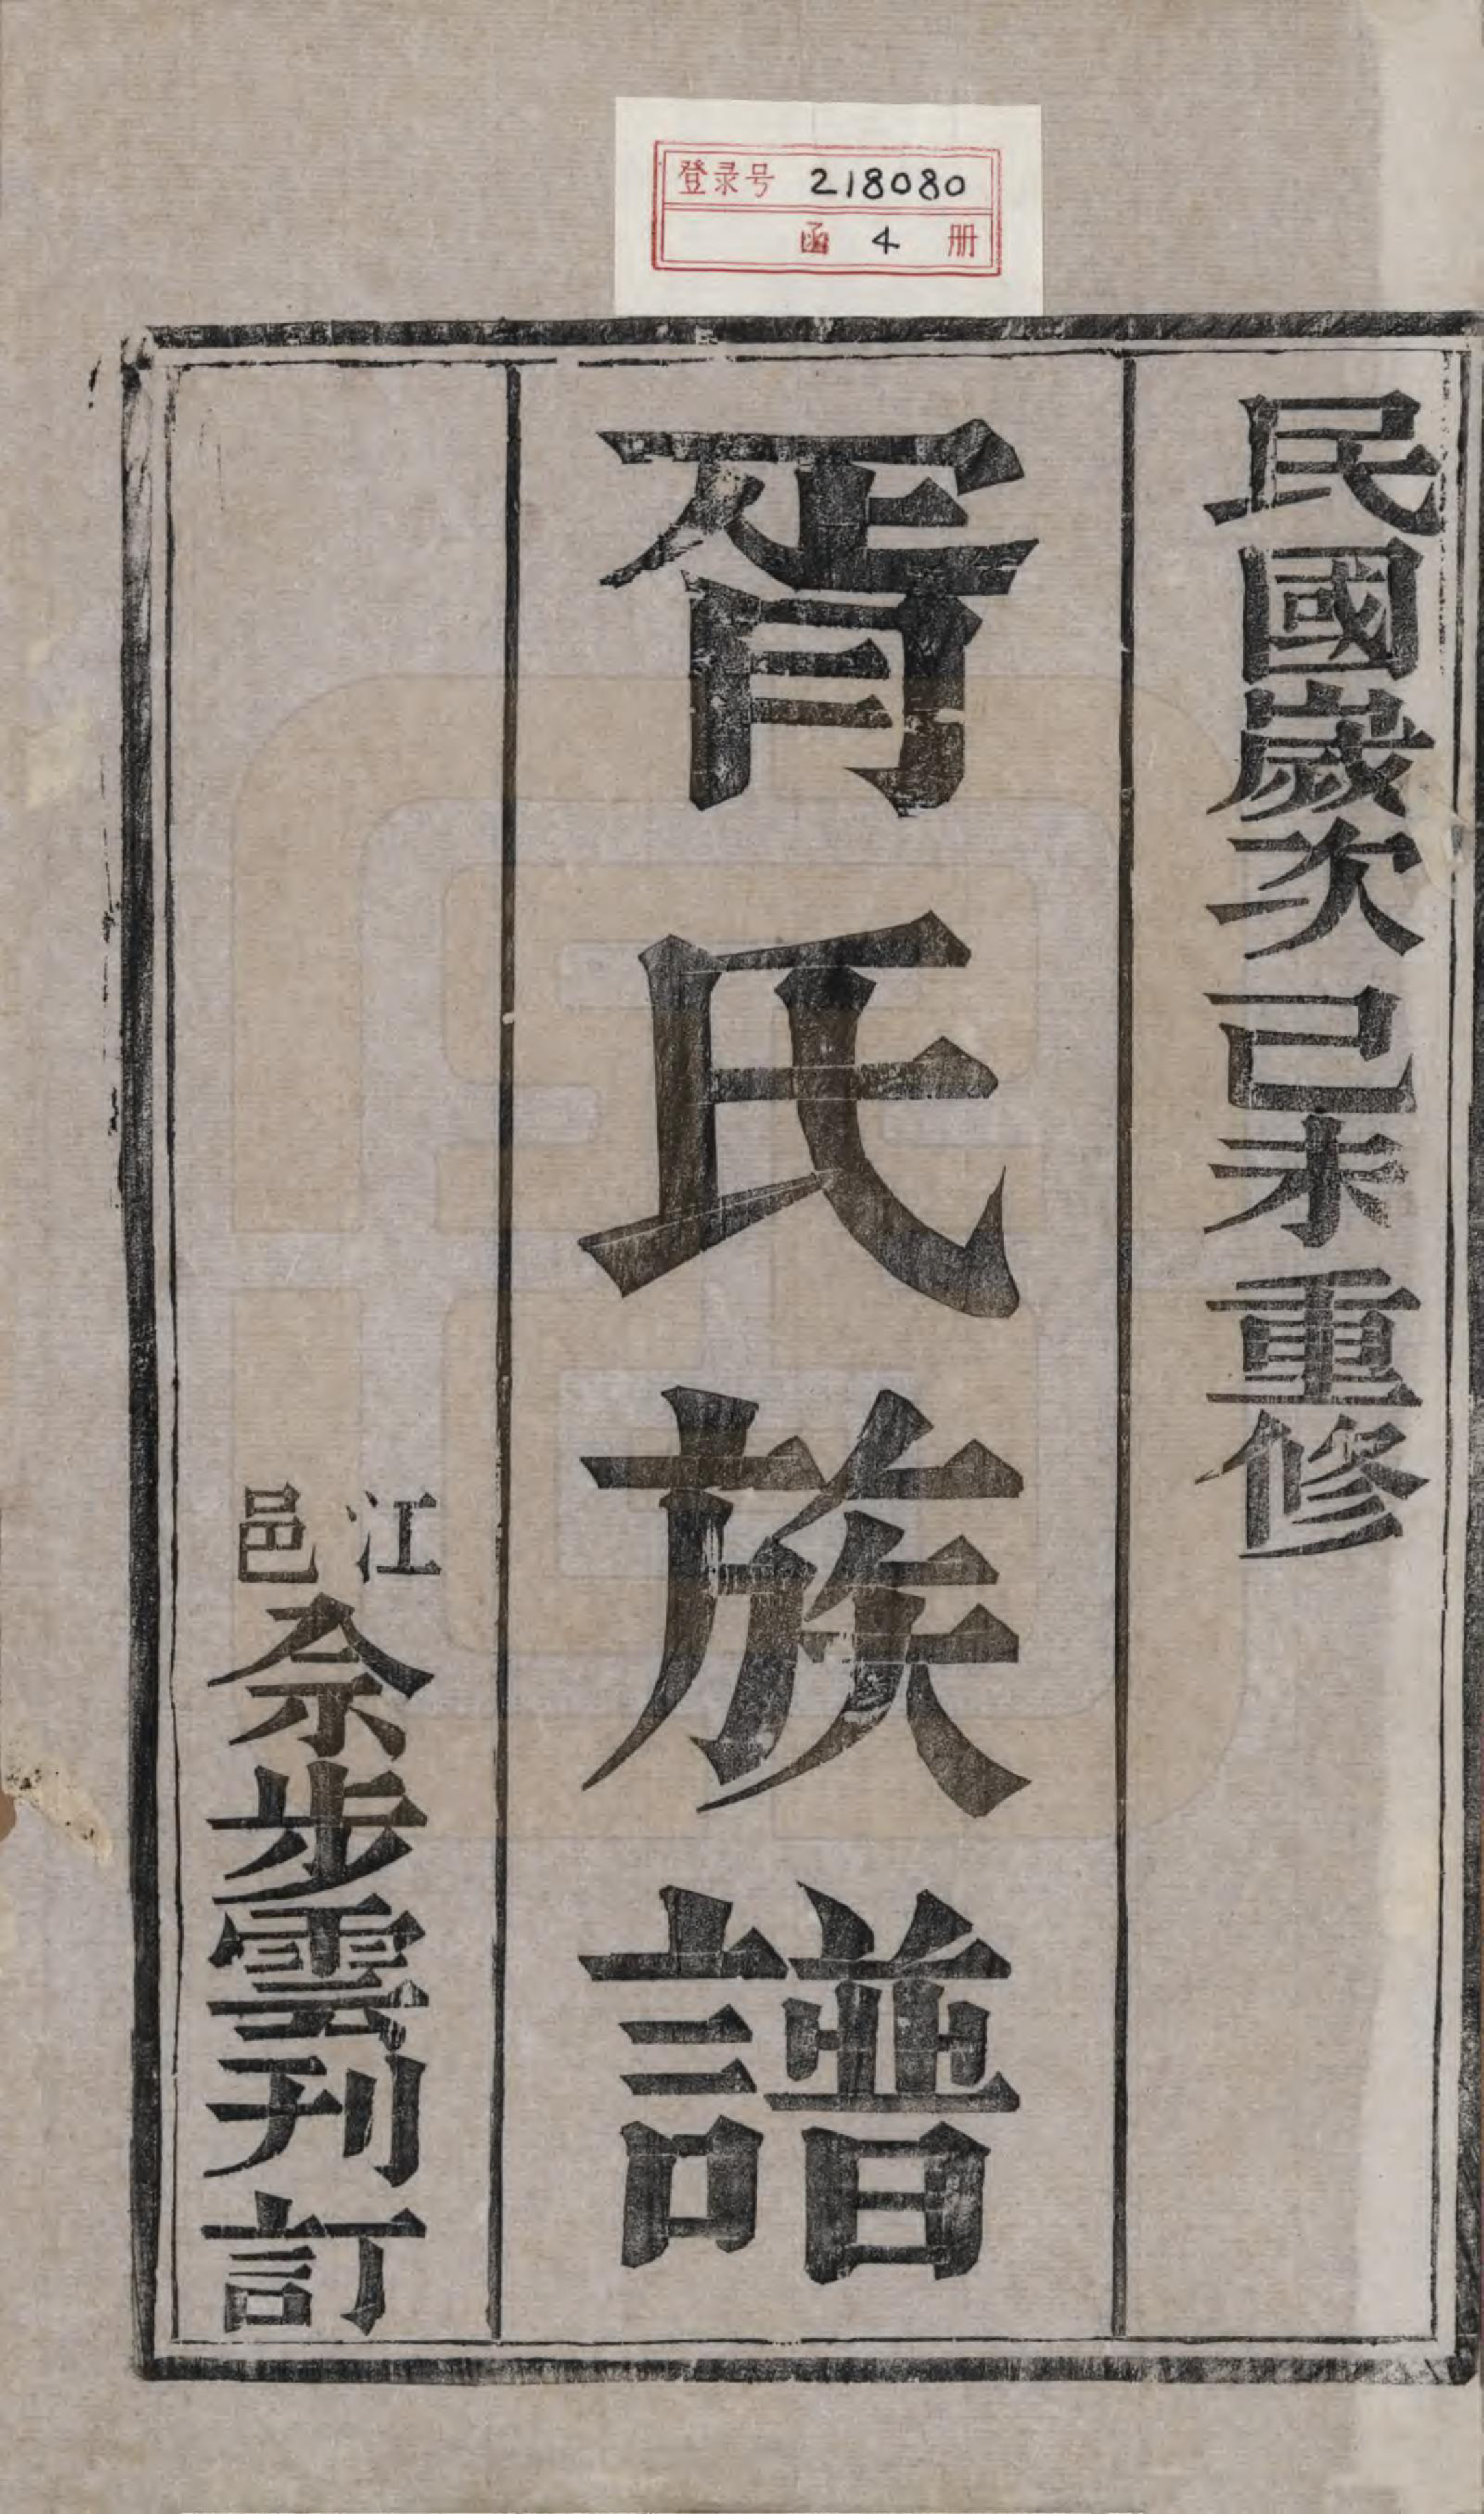 登录号 218080
函 4 册
民國歲次已未重修
胥氏族譜
江邑佘步雲刊訂